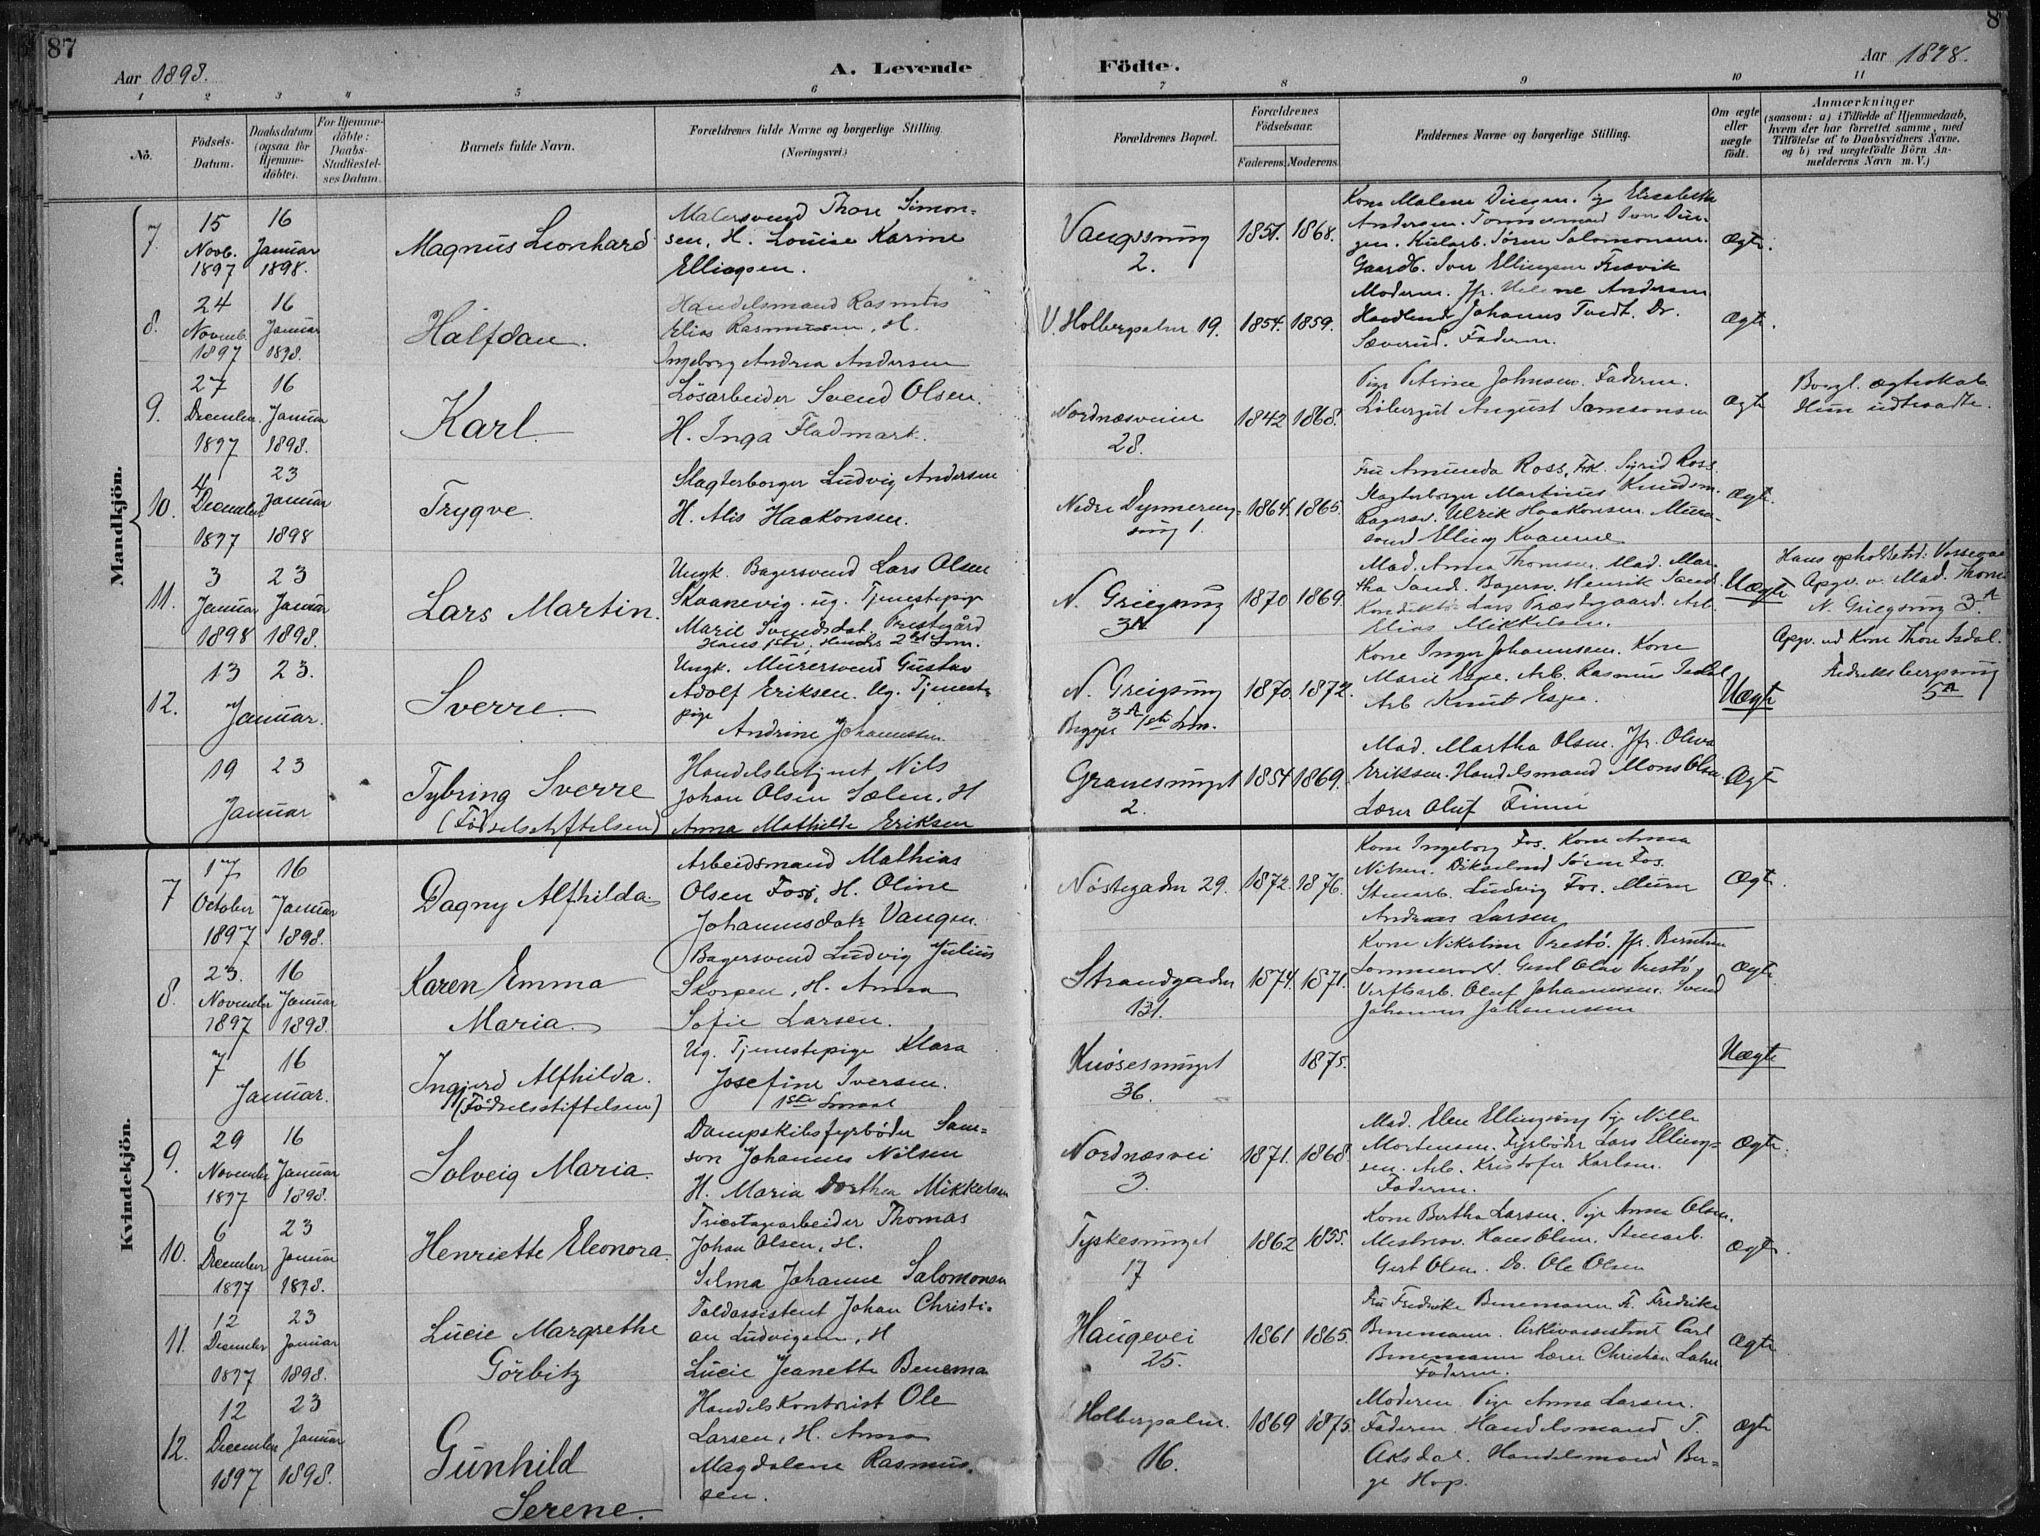 87
8
Aar 1898.
A. Levende
Födte.
Aar 1898.
1 2 3 4 5 6 7 8 9 10 11
No.
Födsels-
Datum.
Daabsdatum
(ogsaa for
Hjemme-
döbte).
For Hjemme-
döbte:
Daabs-
Stadfæstel-
ses Datum.
Barnets fulde Navn.
Forældrenes fulde Navne og borgerlige Stilling.
(Næringsvei.)
Forældrenes Bopæl.
Forældrenes
Födselsaar.
Faderens. Moderens.
Faddernes Navne og borgerlige Stilling.
Om ægte
eller
uægte
födt.
Anmærkninger
(saasom: a) i Tilfælde af Hjemmedaab,
hvem der har forrettet samme, med
Tilföielse af to Daabsvidners Navne,
og b) ved uægtefödte Börn An-
melderens Navn m. V.)
Mandkjön.
7.
15
Novb.
1897
16
Januar
1898.
Magnus Leonhard
Malersvend Thore Simon-
sen, H. Louise Karine
Ellingsen.
Vangsmug
2.
1857. 1868.
Andersen. Tømmermand Iver
gen. Kularb. Søren Salomonsen.
Gaardb. Iver Ellingsen Fresvik
Ægte.
8.
24
Novemb.
1897
16
Januar
1898.
Halfdan.
Handelsmand Rasmus
Elias Rasmussen, H.
Ingeborg Andrea Andersen
V. Holbergsalm 19.
1854. 1859.
Moderen. Jfr. Helene Andersen
Handlende Johannes Tvedt. Dr.
Sæverud. Faderen.
Ægte.
9.
27
December.
1897
16
Januar
1898.
Karl.
Løsarbeider Svend Olsen.
H. Inga Fladmark.
Nordnæsveien
28.
1842 1868.
Pige Petrine Johnsen. Faderen.
Løbergut August Samsonsen
Ægte
Borgl. ægteskab.
Hun udtraadte.
10.
4
December
1897
23
Januar
1898
Trygve.
Slagterborger Ludvig Andersen
H. Alis Haakonsen.
Nedre
smug 1.
1864. 1865.
Fru Amunda Ross, Frk. Sigrid Ross.
Slagterborger Martinus Knudsen.
Bagersv. Ulrik Haakonsen. Murer-
svend Elling Kvamme.
Ægte.
11.
3
Januar
1898
23
Januar
1898.
Lars Martin.
Ungk. Bagersvend Lars Olsen
Skaanevig. ug. Tjenestepige
Marie Svendsdat. Prestegård
Hans 1ste, Hendes 2det Lm.
N. Griegsmug
3A
1870 1869.
Mad. Anna Thomsen. Mad. Mar-
tha Sand. Bagersv. Henrik Sand.
Konduktør Lars Præstegaard. Arb.
Elias Mikkelsen.
Uægte
Hans opholdsted: Vossevan
Apgv. v. Mad. Thom
N. Griegsmug 3.A
12.
13
Januar.
23.
Sverre.
Ungk. Murersvend Gustav
Adolf Eriksen. Ug. Tjeneste-
pige
Andrine Johannessen
N. Greigsmug
3A
Begges 1ste Lm.
1870 1872.
Kone Inger Johannesen. Kone
Marie Espe. Arb. Rasmus Isdal
Arb Knut Espe.
Uægte
Apgv. ved Kone Thore Isdal.
Fredriksbergsmug
5A
19
Januar
23
Tybring Sverre
(Fødselsstiftelsen)
Handelsbetjent Nils
Johan Olsen Sælen, H
Anna Mathilde Eriksen
Granesmuget
2.
1854 1869.
Mad. Martha Olsen. Jfr. Oliva
Eriksen. Handelsmand Mons Olsen.
Lærer Oluf Finne
Ægte
Kvindekjön.
7
17
October
1897
16
Januar
1898.
Dagny Alfhilda.
Arbeidsmand Mathias
Olsen Foss, H. Oline
Johannesdatr Vangen.
Nøstegaden 29.
1872. 1876.
Kone Ingeborg Fos. Kone Anna
Nilsen. Søren Fos.
Stenarb. Ludvig Fos. Murer
Andreas Larsen
Ægte.
8.
23.
November
1897
16
Januar
1898.
Karen Emma
Maria.
Bagersvend Ludvig Julius
Skorpen, H. Anna
Sofie Larsen.
Strandgaden
131.
1874. 1871.
Kone Nikoline Prestø. Jfr. Berntine
Olav Prestø,
Verftsarb. Oluf Johannessen. Svend
Johannes Johannessen
Ægte.
7
Januar.
16
Ingjerd Alfhilda.
(Fødselsstiftelsen)
Ug. Tjenestepige Klara
Josefine Iversen.
1ste Lmaal
Knøsesmuget
36.
1875.
Uægte
9.
29
November
1897
16
Januar
1898.
Solveig Maria.
Dampskibsfyrbøder Sam-
son Johannes Nilsen
H. Maria Dorthea Mikkelsen
Nordnæsvei
3.
1871. 1868.
Mad. Elen Ellingsen Pige Nille
Mortensen. Fyrbøder Lars Elling-
sen. Arb. Kristofer Karlsen.
Faderen.
Ægte.
10.
6
December
1897
23
Januar
1898.
Henriette Eleonora.
Tricotagearbeider Thomas
Johan Olsen, H.
Selma Johanne Salomonsen
Tyskesmuget
17
1862 1855.
Kone Bertha Larsen. Pige Anna Olsen.
Hans Olsen. Stenarb.
Gert Olsen. Do. Ole Olsen
Ægte.
11.
12
December
1897
23
Januar
1898.
Lucie Margrethe
Görbitz
Toldassistent Johan Christi-
an Ludvigsen, H
Lucie Jeanette Benema
Haugevei
25.
1861 1865.
Fru Fredrike Benemann Fr. Fredrike
Benemann. Arkivassistent Carl
Benemann Lærer Christian
Faderen.
Ægte.
12.
12
December
1897
23
Januar
1898.
Gunhild
Serene.
Handelskontorist Ole
Larsen, H. Anna
Magdalene Rasmus-
sen.
Holbergsalm.
16.
1869 1875.
Moderen Pige Anna Larsen.
Faderen Handelsmand T.
Aksdal. Handelsmand Ber-
ge Hop.
Ægte